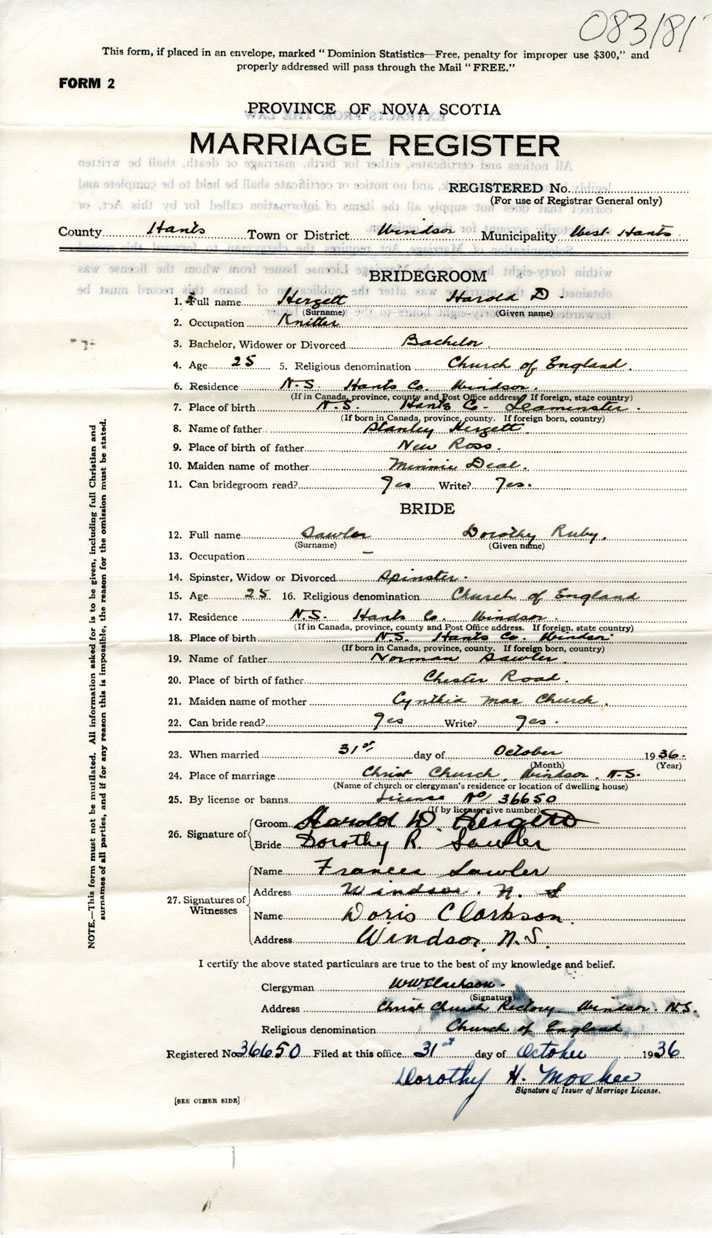 083/81
This form, if placed in an envelope, marked "Dominion Statistics—Free, penalty for improper use $300," and
properly addressed will pass through the Mail "FREE."
FORM 2
PROVINCE OF NOVA SCOTIA
MARRIAGE REGISTER
REGISTERED No.
(For use of Registrar General only)
County Hants Town or District Windsor Municipality West Hants
BRIDEGROOM
1. Full name Hergett Harold D.
(Surname) (Given name)
2. Occupation Knitter
3. Bachelor, Widower or Divorced Bachelor
4. Age 25 5. Religious denomination Church of England.
6. Residence N.S. Hants Co. Windsor.
(If in Canada, province, county and Post Office address. If foreign, state country)
7. Place of birth N.S. Hants Co. Leminster.
(If born in Canada, province, county. If foreign born, country)
8. Name of father Stanley Hergett
9. Place of birth of father New Ross.
10. Maiden name of mother Minnie Deal.
11. Can bridegroom read? Yes Write? Yes.
BRIDE
12. Full name Sawler Dorothy Ruby.
(Surname) (Given name)
13. Occupation —
14. Spinster, Widow or Divorced Spinster.
15. Age 25 16. Religious denomination Church of England
17. Residence N.S. Hants Co. Windsor.
(If in Canada, province, county and Post Office address. If foreign, state country)
18. Place of birth N.S. Hants Co. Windsor.
(If born in Canada, province, county. If foreign born, country)
19. Name of father Norman Sawler
20. Place of birth of father Chester Road.
21. Maiden name of mother Cynthia Mae Church.
22. Can bride read? Yes Write? Yes.
23. When married 31st day of October 1936.
(Month) (Year)
24. Place of marriage Christ Church, Windsor, N.S.
(Name of church or clergyman's residence or location of dwelling house)
25. By license or banns License No. 36650
(If by license give number)
26. Signature of
Groom Harold D. Hergett
Bride Dorothy R. Sawler
27. Signatures of Witnesses
Name Frances Sawler
Address Windsor. N. S
Name Doris Clarkson.
Address Windsor, N.S.
I certify the above stated particulars are true to the best of my knowledge and belief.
Clergyman WWClarkson.
(Signature)
Address Christ Church Rectory Windsor N.S.
Religious denomination Church of England
Registered No. 36650 Filed at this office 31st day of October 1936
Dorothy H. Mosher
Signature of Issuer of Marriage License.
[SEE OTHER SIDE]
NOTE.—This form must not be mutilated. All information asked for is to be given, including full Christian and
surnames of all parties, and if for any reason this is impossible, the reason for the omission must be stated.